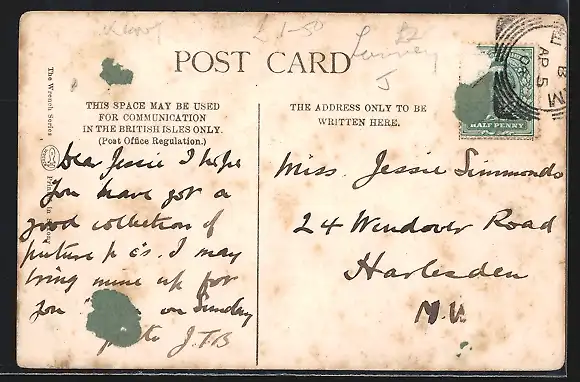 £1-50
£2
J
POST CARD
THIS SPACE MAY BE USED
FOR COMMUNICATION
IN THE BRITISH ISLES ONLY.
(Post Office Regulation.)
THE ADDRESS ONLY TO BE
WRITTEN HERE.
HALF PENNY
AP 5
The Wrench Series
Printed in
Dear Jessie I hope
you have got a
good collection of
picture p c's. I may
bring mine up for
you on Sunday
J.T.B
Miss. Jessie Simmonds
24 Wendover Road
Harlesden
N.W